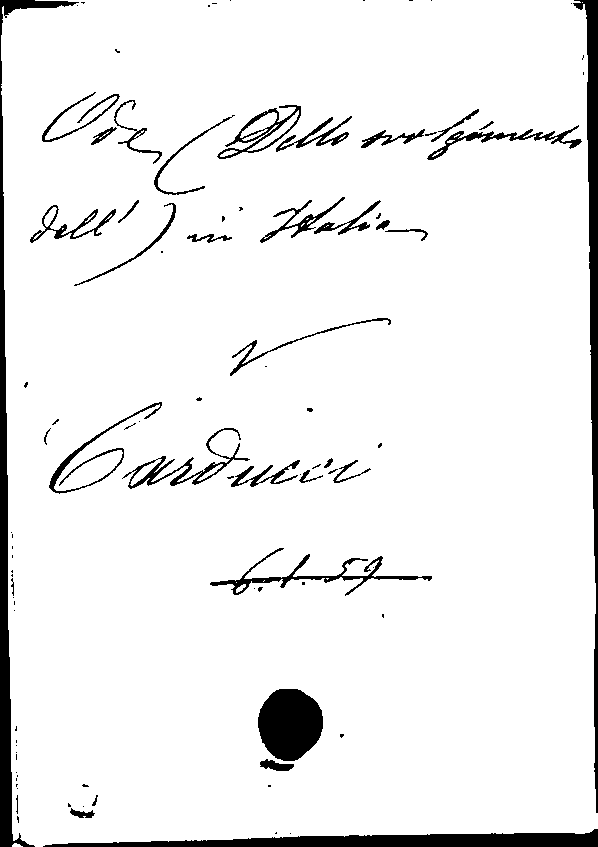 Ode (Dello svolgimento
dell') in Italia
V
Carducci
6.1.59